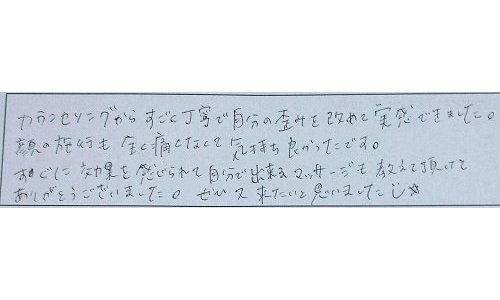 カウンセリングからすごく丁寧で自分の歪みを改めて実感できました。
顔の施術も全く痛くなくて気持ち良かったです。
すぐに効果を感じられて自分で出来るマッサージも教えて頂けて
ありがとうございました。ぜひ又来たいと思いました☆